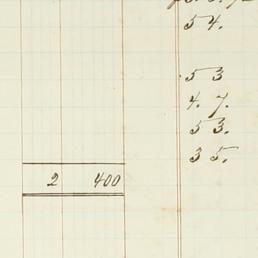 54.
53
4.7.
53.
35.
2 400